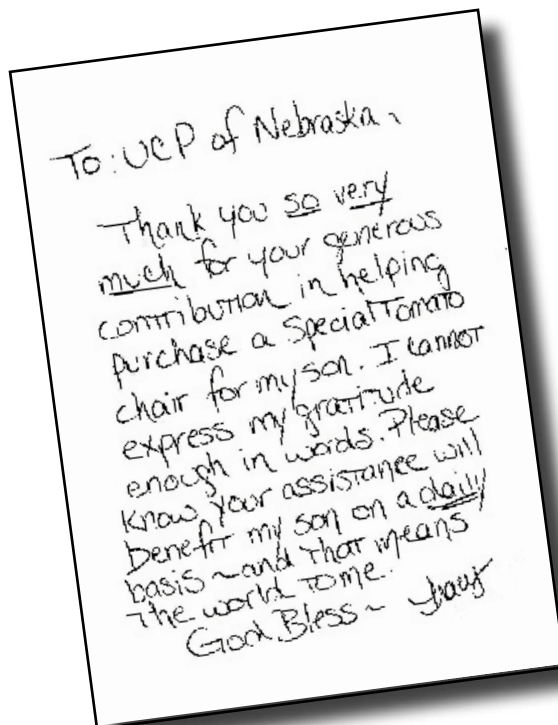 To: UCP of Nebraska,
Thank you so very
much for your generous
contribution in helping
purchase a Special Tomato
chair for my son. I cannot
express my gratitude
enough in words. Please
know your assistance will
benefit my son on a daily
basis ~ and that means
the world to me.
God Bless ~